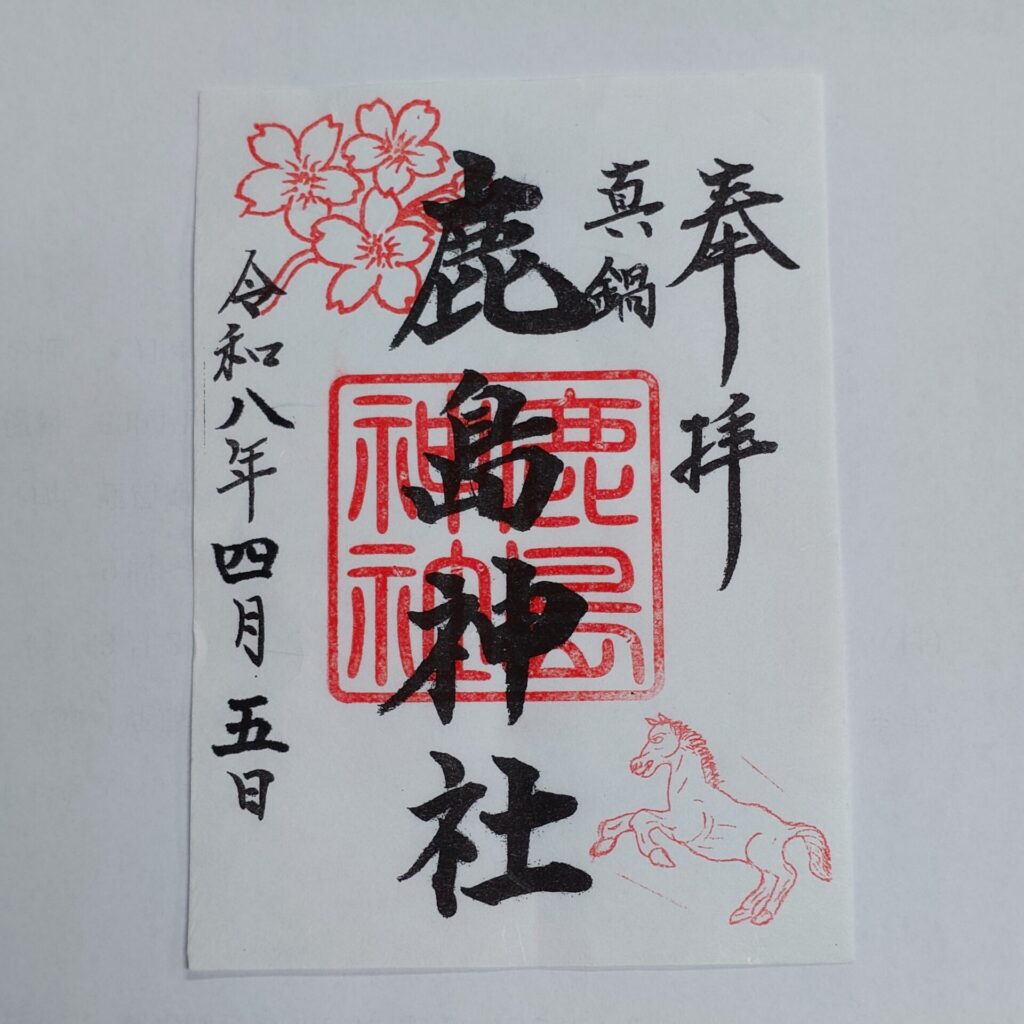 奉拝
真鍋
鹿島神社
鹿島
神社
令和八年四月五日